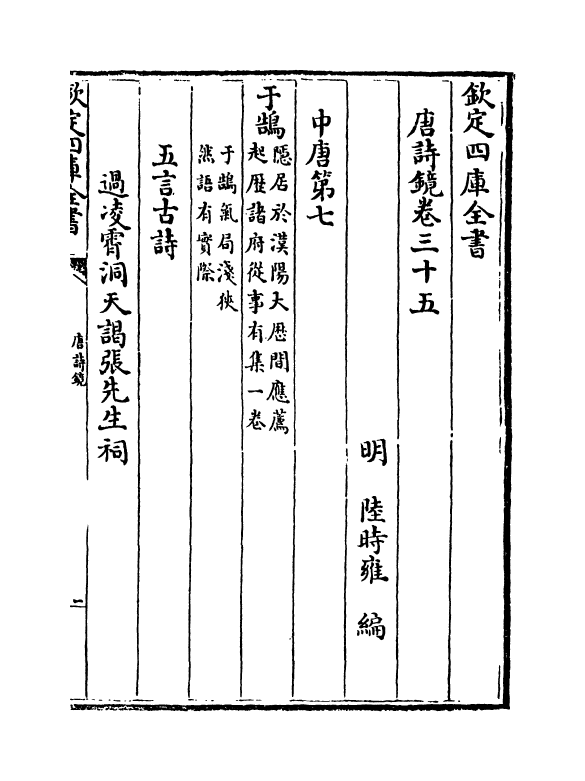 欽定四庫全書
唐詩鏡卷三十五
明　陸時雍　編
中唐第七
于鵠隱居於漢陽大歷間應薦
起歷諸府從事有集一卷
于鵠氣局淺狹
然語有實際
五言古詩
過凌霄洞天謁張先生祠
欽定四庫全書
唐詩鏡